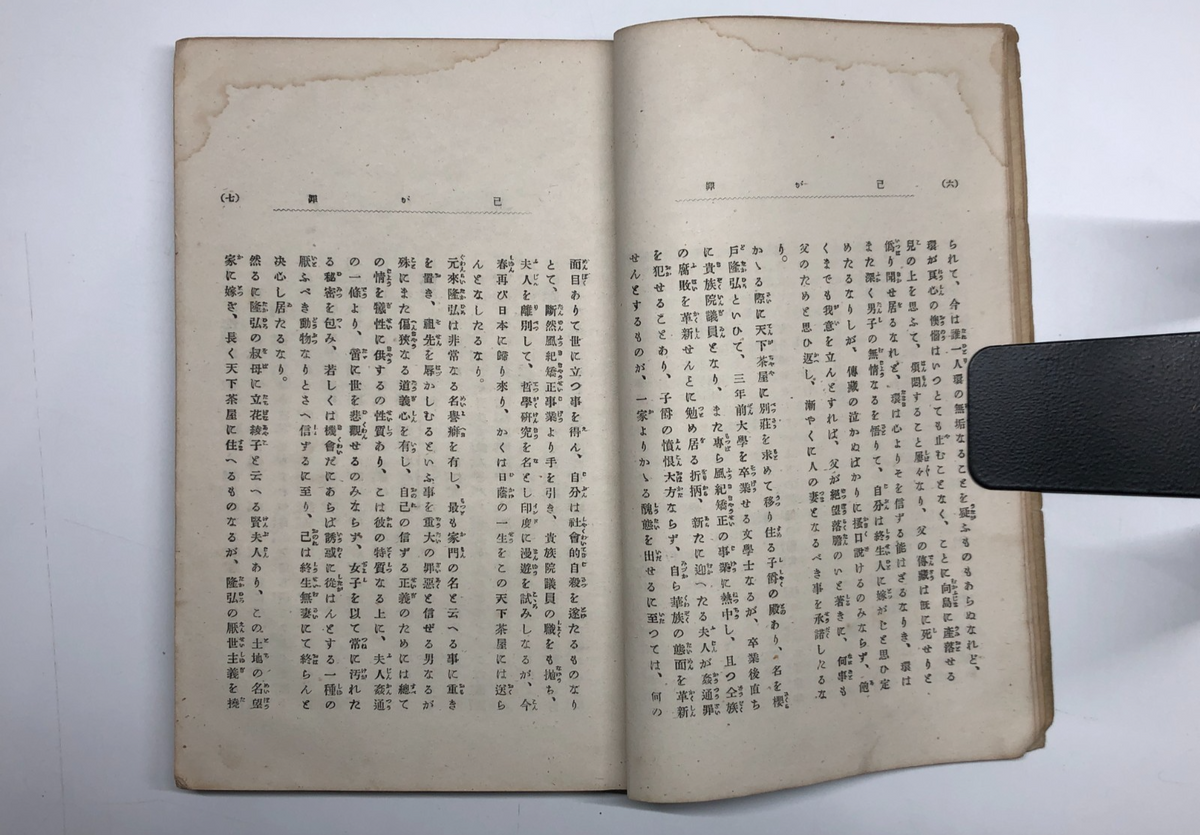 （六）
己が罪
られて、今は誰一人環の無垢なることを疑ふものもあらぬなれど、
環が良心の懊惱はいつとても止むことなく、ことに向島に産落せる
兒の上を思ふて、煩悶すること屢々なり、父の傳藏は既に死せりと
僞り聞せ居るなれど、環は心よりそを信ずる能はざるなりき、環は
また深く男子の無情なるを悟りて、自分は終生人に嫁がじと思ひ定
めたるなりしが、傳藏の泣かぬばかりに掻口說けるのみならず、飽
くまでも我意を立んとすれば、父が絕望落膽のいと著きに、何事も
父のためと思ひ返し、漸やくに人の妻となるべき事を承諾したるな
り。
かゝる際に天下茶屋に別莊を求めて移り住る子爵の殿あり、名を櫻
戶隆弘といひて、三年前大學を卒業せる文學士なるが、卒業後直ち
に貴族院議員となり、また專ら風紀矯正の事業に熱中し、且つ全族
の腐敗を革新せんとに勉め居る折柄、新たに迎へたる夫人が姦通罪
を犯せることあり、子爵の憤恨大方ならず、自ら華族の態面を革新
せんとするものが、一家よりかゝる醜態を出せるに至つては、何の
（七）
己が罪
面目ありて世に立つ事を得ん、自分は社會的自殺を遂たるものなり
とて、斷然風紀矯正事業より手を引き、貴族院議員の職をも抛ち、
夫人を離別して、哲學硏究を名とし印度に漫遊を試みしなるが、今
春再び日本に歸り來り、かくは日蔭の一生をこの天下茶屋には送ら
んとなしたるなり。
元來隆弘は非常なる名譽癖を有し、最も家門の名と云へる事に重き
を置き、祖先を辱かしむるといふ事を重大の罪惡と信ぜる男なるが
殊にまた偏狹なる道義心を有し、自己の信ずる正義のためには總て
の情を犧性に供するの性質あり、こは彼の特質なる上に、夫人姦通
の一條より、啻に世を悲觀せるのみならず、女子を以て常に汚れた
る秘密を包み、若しくは機會だにあらば誘惑に從はんとする一種の
厭ふべき動物なりとさへ信ずるに至り、己は終生無妻にて終らんと
決心し居たるなり。
然るに隆弘の叔母に立花綾子と云へる賢夫人あり、この土地の名望
家に嫁ぎ、長く天下茶屋に住へるものなるが、隆弘の厭世主義を撓